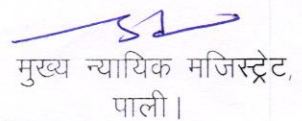 मुख्य न्यायिक मजिस्ट्रेट,
पाली।